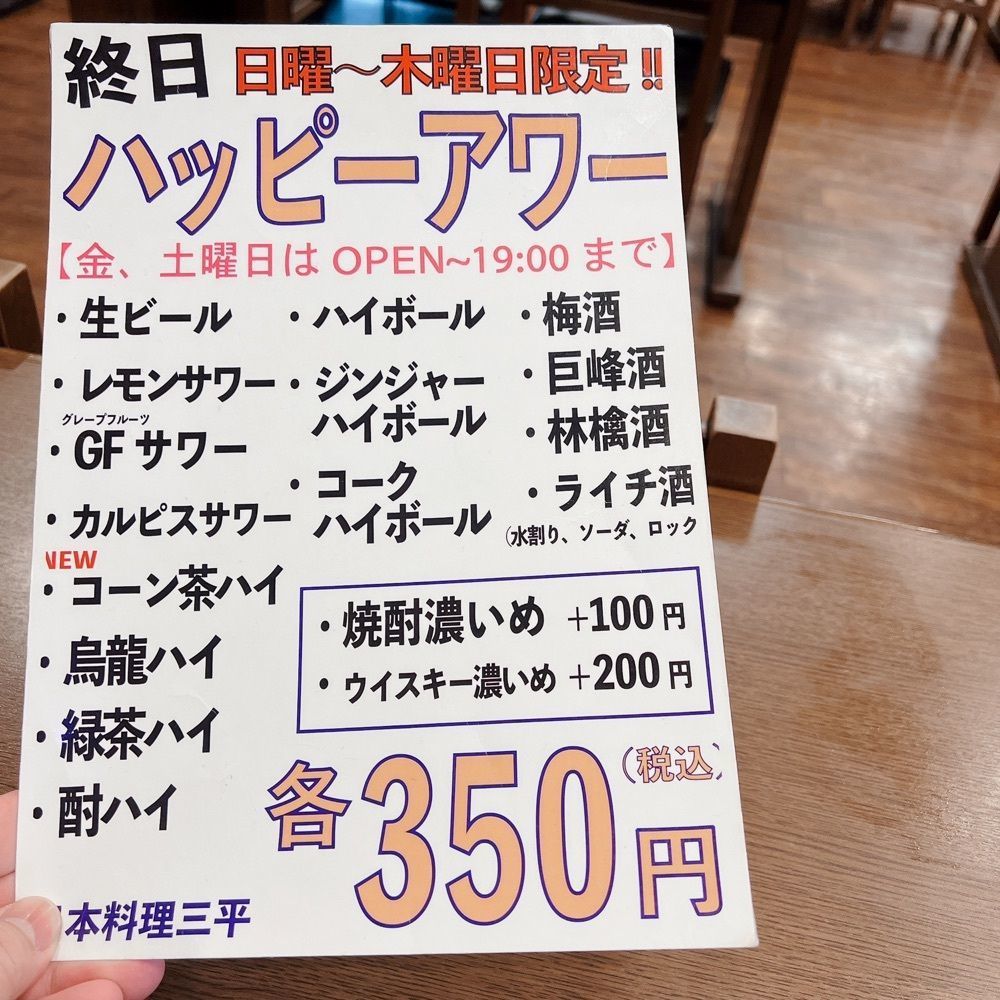 終日 日曜〜木曜日限定!!
ハッピーアワー
【金、土曜日は OPEN~19:00 まで】
・生ビール
・レモンサワー
グレープフルーツ
・GFサワー
・カルピスサワー
NEW
・コーン茶ハイ
・烏龍ハイ
・緑茶ハイ
・酎ハイ
・ハイボール
・ジンジャー
ハイボール
・コーク
ハイボール
・梅酒
・巨峰酒
・林檎酒
・ライチ酒
(水割り、ソーダ、ロック
・焼酎濃いめ +100円
・ウイスキー濃いめ +200円
各350円(税込)
本料理三平